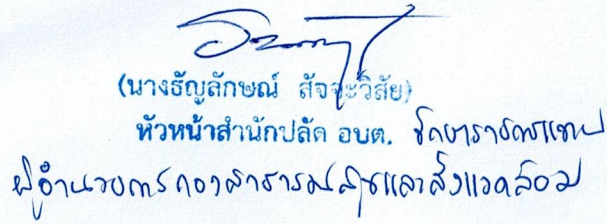 (นางธัญลักษณ์ สัจจะวิสัย)
หัวหน้าสำนักปลัด อบต. รักษาราชการแทน
ผู้อำนวยการกองสาธารณสุขและสิ่งแวดล้อม